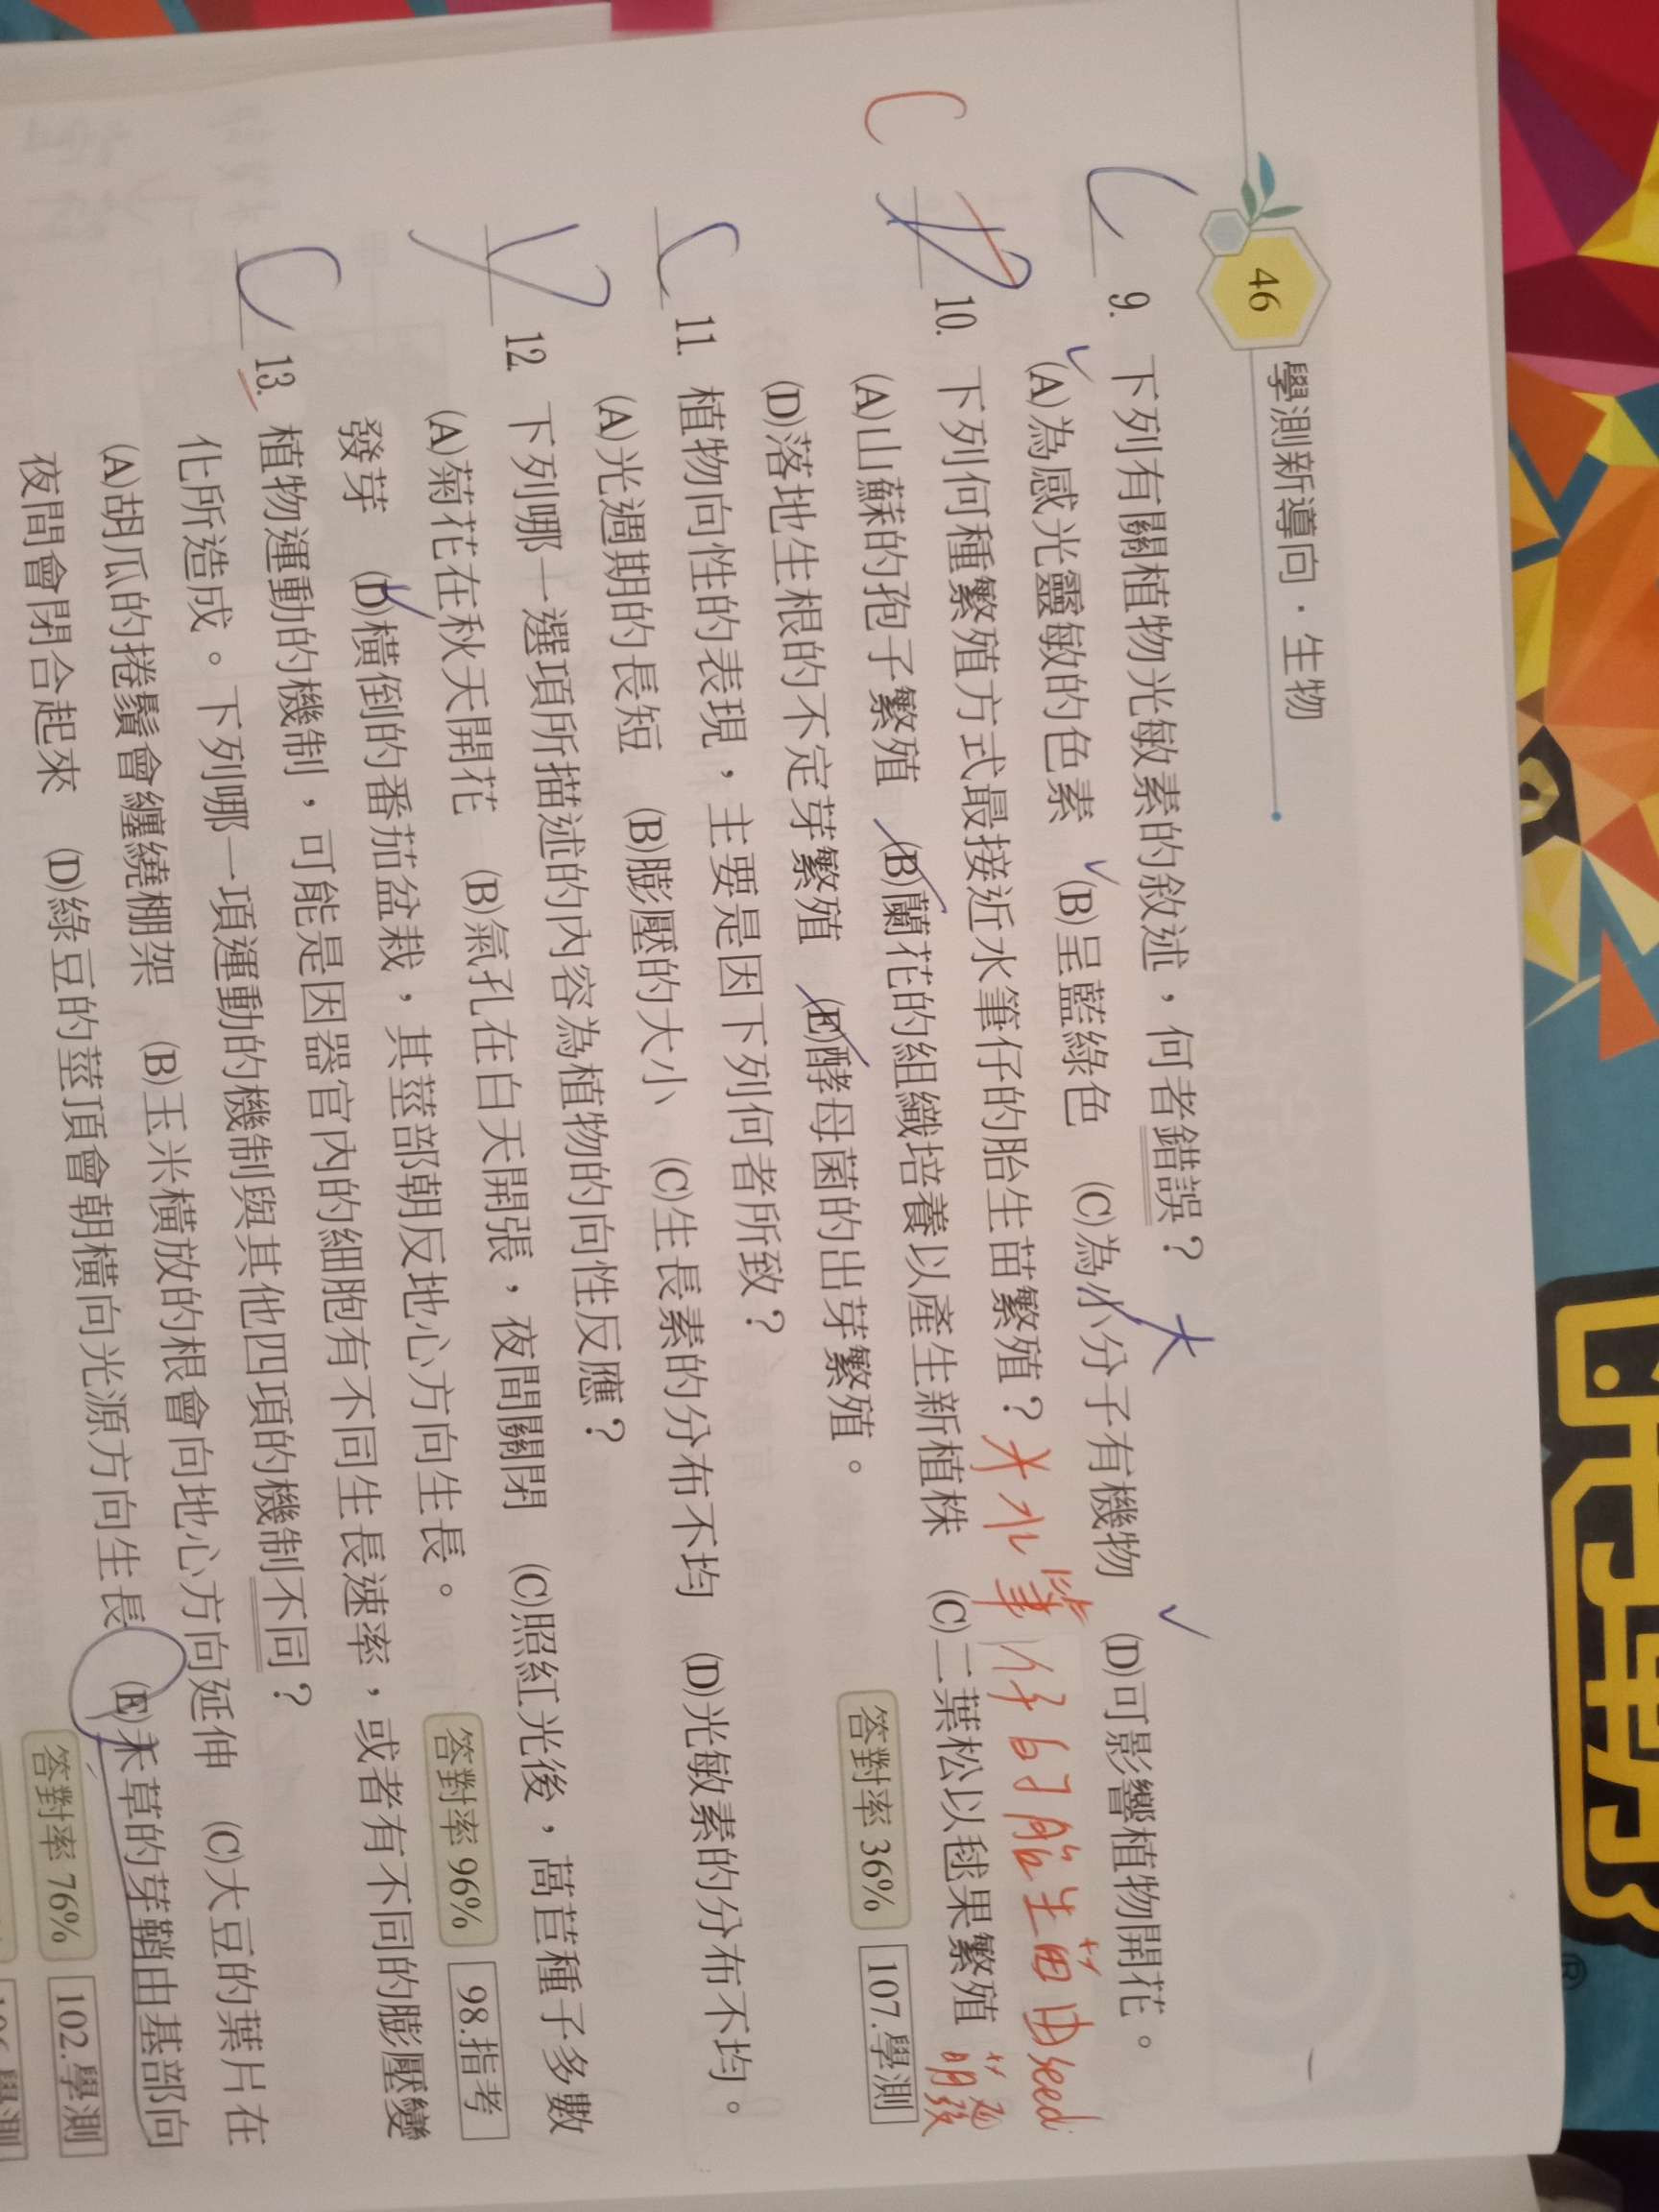 46
學測新導向．生物
C 9. 下列有關植物光敏素的敘述，何者錯誤？
(A)為感光靈敏的色素 (B)呈藍綠色 (C)為小分子有機物 (D)可影響植物開花。
大
C 10. 下列何種繁殖方式最接近水筆仔的胎生苗繁殖？
水筆仔的胎生苗由seed萌發
(A)山蘇的孢子繁殖 (B)蘭花的組織培養以產生新植株 (C)二葉松以毬果繁殖
(D)落地生根的不定芽繁殖 (E)酵母菌的出芽繁殖。
答對率 36% 107.學測
C 11. 植物向性的表現，主要是因下列何者所致？
(A)光週期的長短 (B)膨壓的大小 (C)生長素的分布不均 (D)光敏素的分布不均。
D 12. 下列哪一選項所描述的內容為植物的向性反應？
(A)菊花在秋天開花 (B)氣孔在白天開張，夜間關閉 (C)照紅光後，萵苣種子多數
發芽 (D)橫倒的番茄盆栽，其莖部朝反地心方向生長。
答對率 96% 98.指考
C 13. 植物運動的機制，可能是因器官內的細胞有不同生長速率，或者有不同的膨壓變
化所造成。下列哪一項運動的機制與其他四項的機制不同？
(A)胡瓜的捲鬚會纏繞棚架 (B)玉米橫放的根會向地心方向延伸 (C)大豆的葉片在
夜間會閉合起來 (D)綠豆的莖頂會朝橫向光源方向生長 (E)禾草的芽鞘由基部向
答對率 76% 102.學測